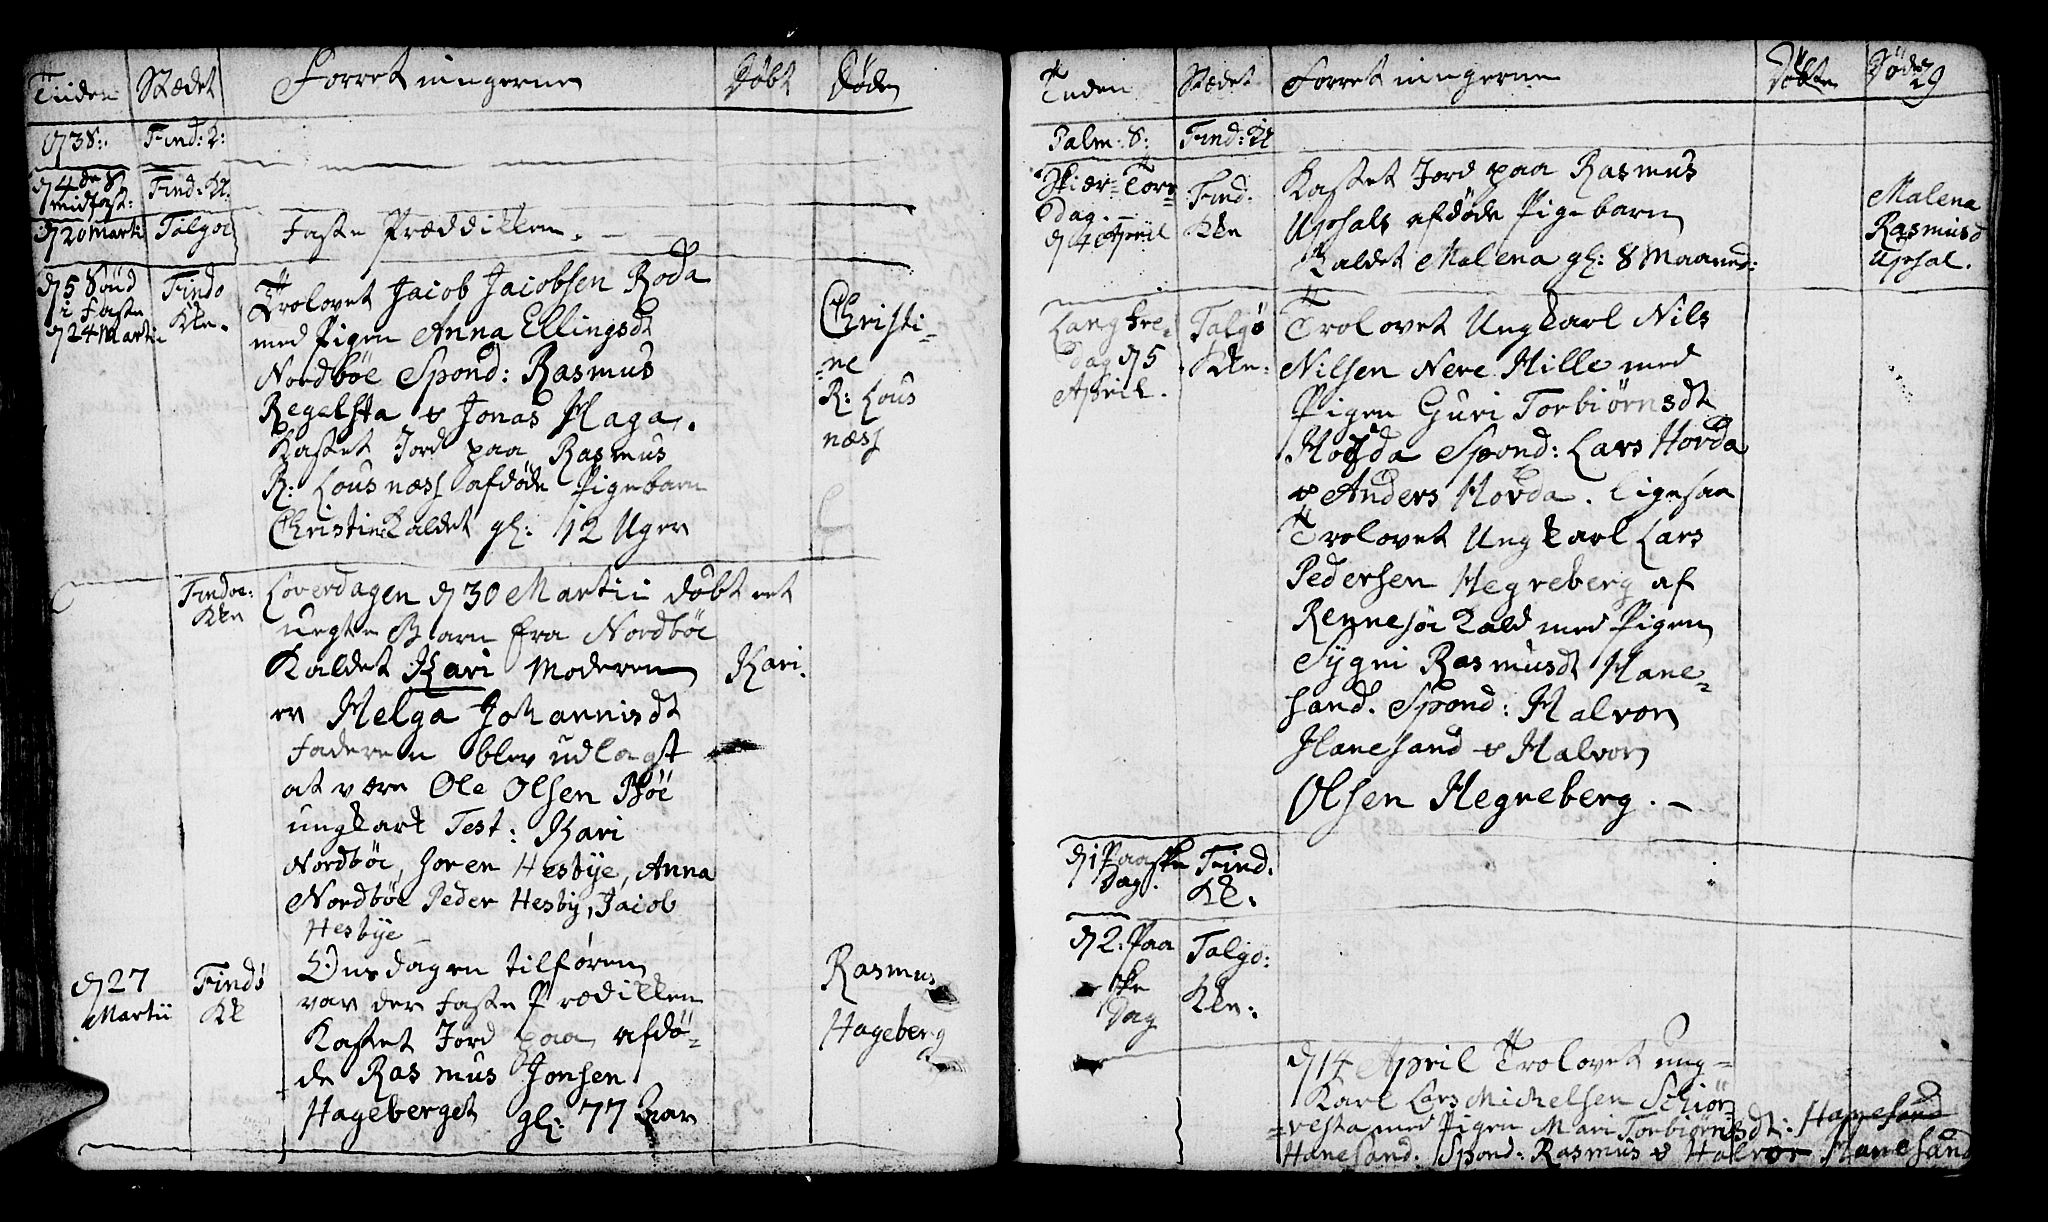 Tiiden Stædet Forretningerne Døbt Døde
1738: Find: K:
d 4de S midfast: Find: Kk:
d 20 Marti Talgøe Faste Præddikken.
d 5 Sønd i Faste d 24 Martii
Findø Kke.
Trolovet Jacob Jacobsen Roda
med Pigen Anna Ellingsdt
Nordbøe Spond: Rasmus
Regelsta & Jonas Haga.
Kastet Jord paa Rasmus
R: Lousness afdøde Pigebarn
Christine Kaldet gl: 12 Uger
Christi-
=ne
R: Lous
næss
Findøe: Kke
Løverdagen d 30 Martii døbt et
uegte Barn fra Nordbøe
Kaldet Kari Moderen
er Helga Johannisdt
Faderen blev udlagt
at være Ole Olsen Bøe
ungkarl Test: Kari
Nordbøe, Soren Hesbye, Anna
Nordbøe Peder Hesby, Jacob
Hesbye
Kari.
d 27
Martii
Findø
Kk
Onsdagen tilforen
var der Faste Prædikken
Kastet Jord paa afdø-
de Rasmus Jonsen
Hageberget gl: 77 Aar
Rasmus
Hageberg
Tiiden Stædet Forretningerne Døbte Døde 29
Palm: S: Find: Kk
Skier-Tors
dag.
d 4 April
Find.
Kke
Kastet Jord paa Rasmus
Upsals afdøde Pigebarn
Kaldet Malena gl: 8 Maaned:
Malena
Rasmusd
Upsal.
Langfre-
dag d 5
April.
Talgø
Kke:
Trolovet Ungkarl Nils
Nilsen Nere Hille med
Pigen Guri Torbiørnsdt
Hovda Spond: Lars Hovda
& Anders Hovda. Ligesaa
Trolovet Ungkarl Lars
Pedersen Hegreberg af
Rennesøe Kald med Pigen
Sygni Rasmusdt Hane=
sand. Spond: Halvor
Hanesand & Halvor
Olsen Hegreberg. -
d 1 Paaske
Dag.
Find.
Kk.
d 2. Paa
ske
Dag
Talgø:
Kke:
d 14 April Trolovet ung-
Karl Lars Michelsen Schiør-
=vesta med Pigen Mari Torbiørnsdt: Hanesand
Hanesand. Spond: Rasmus & Halvor Hanesand